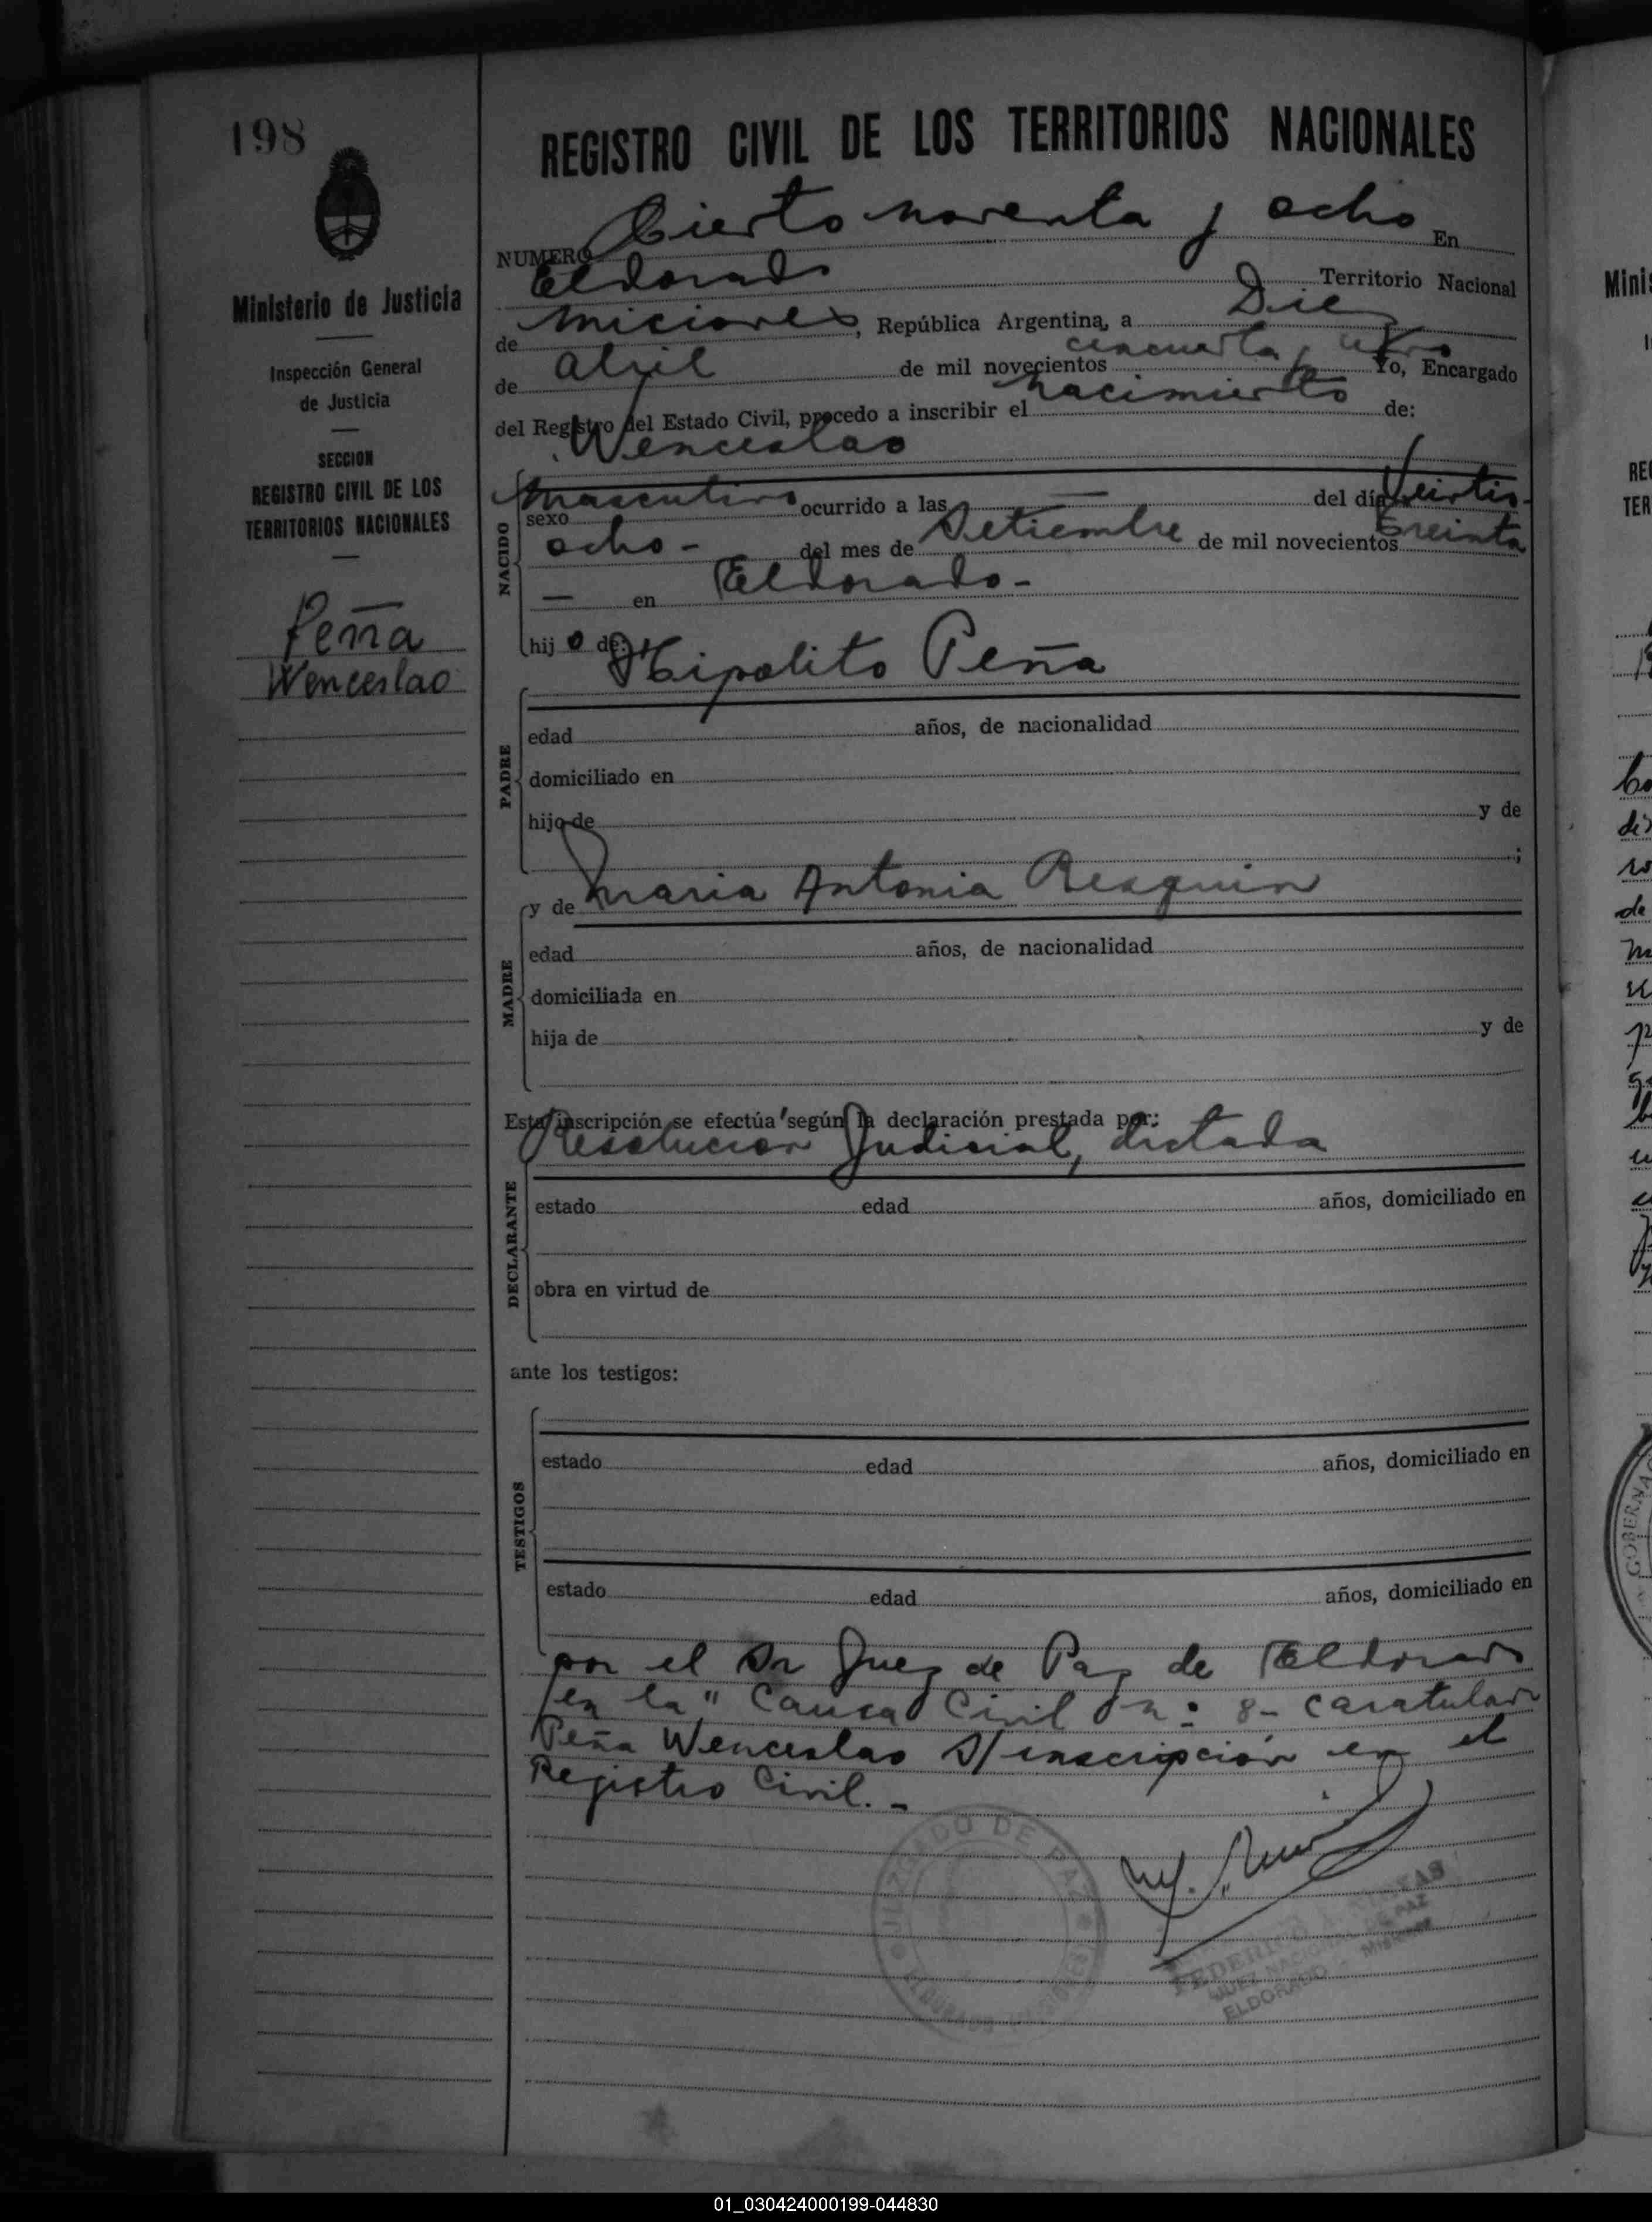 198
REGISTRO CIVIL DE LOS TERRITORIOS NACIONALES
Ministerio de Justicia
Inspección General
de Justicia
SECCION
REGISTRO CIVIL DE LOS
TERRITORIOS NACIONALES
Peña
Wenceslao
NUMERO Ciento noventa y ocho En
Eldorado Territorio Nacional
de Misiones, República Argentina, a Diez
de abril de mil novecientos cincuenta y Yo, Encargado
del Registro del Estado Civil, procedo a inscribir el nacimiento de:
Wenceslao
NACIDO
sexo masculino ocurrido a las — del día Veinti-
ocho - del mes de Setiembre de mil novecientos treinta
— en Eldorado -
hijo de: Hipolito Peña
PADRE
edad años, de nacionalidad
domiciliado en
hijo de y de
;
y de Maria Antonia
MADRE
edad años, de nacionalidad
domiciliada en
hija de y de
Esta inscripción se efectúa según la declaración prestada por:
Resolucion Judicial, dictada
DECLARANTE
estado edad años, domiciliado en
obra en virtud de
ante los testigos:
TESTIGOS
estado edad años, domiciliado en
estado edad años, domiciliado en
por el Sr Juez de Paz de Eldorado
en la " Causa Civil n: 8- caratulada
Peña Wenceslao S/ inscripción en el
Registro Civil. -
JUZGADO DE PAZ
FEDERICO
JUEZ NACIONAL DE PAZ
ELDORADO - Misiones
01_030424000199-044830